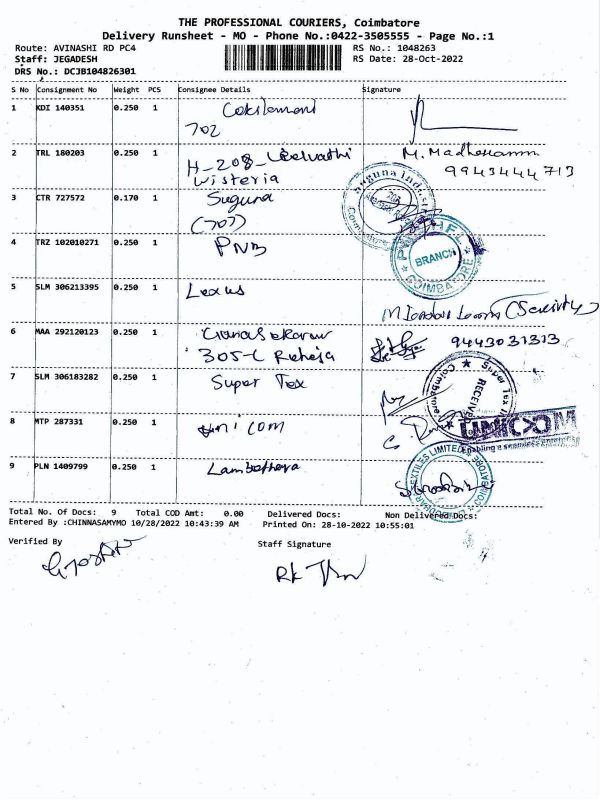 THE PROFESSIONAL COURIERS, Coimbatore
Delivery Runsheet - MO - Phone No.:0422-3505555 - Page No.:1
Route: AVINASHI RD PC4 RS No.: 1048263
Staff: JEGADESH RS Date: 28-Oct-2022
DRS No.: DCJB104826301
S No Consignment No Weight PCS Consignee Details Signature
1 KDI 140351 0.250 1
702
2 TRL 180203 0.250 1 H-208
Wisteria
9943444713
3 CTR 727572 0.170 1 Suguna
(707)
4 TRZ 102010271 0.250 1 PNB
BRANCH
COIMBATORE
5 SLM 306213395 0.250 1 Lexus
(Security)
6 MAA 292120123 0.250 1 9443031313
305-C Raheja
7 SLM 306183282 0.250 1 Super Tex
8 MTP 287331 0.250 1 unicom
UNICOM
Enabling a seamless enterprise
9 PLN 1409799 0.250 1
TEXTILES LIMITED
Total No. Of Docs: 9 Total COD Amt: 0.00 Delivered Docs: Non Delivered Docs:
Entered By :CHINNASAMYMO 10/28/2022 10:43:39 AM Printed On: 28-10-2022 10:55:01
Verified By Staff Signature